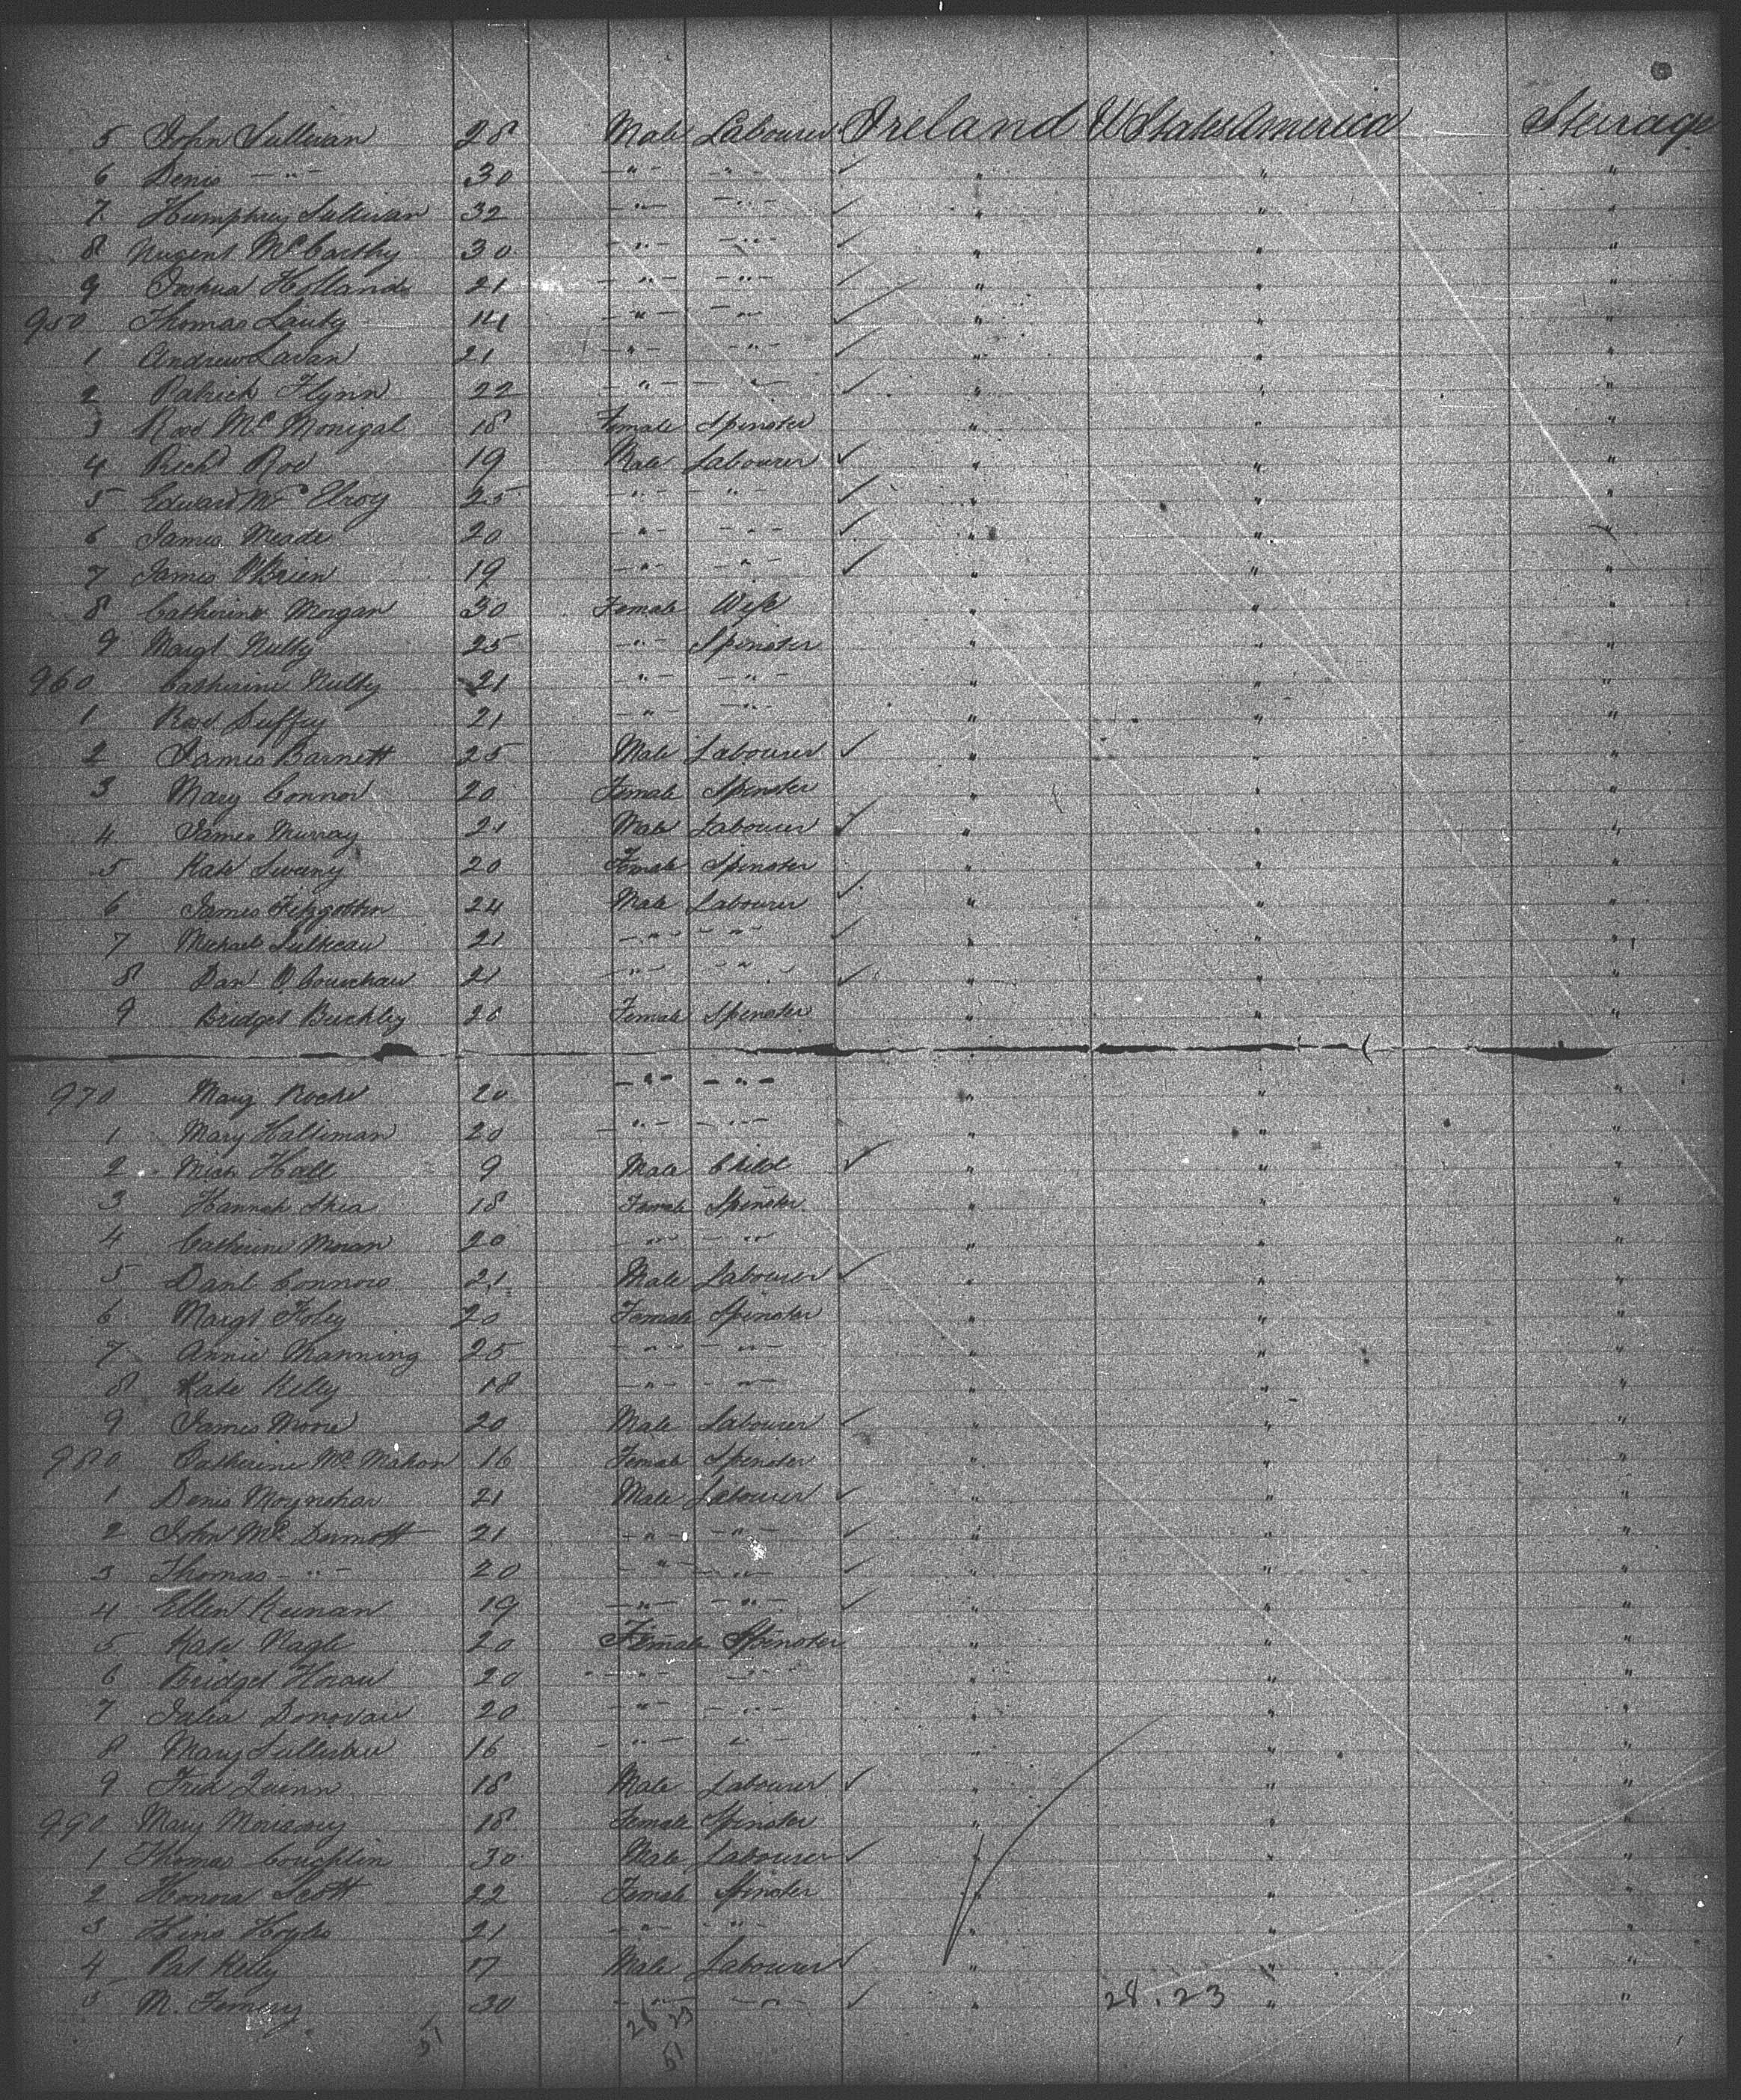 5 John Sullivan 28 Male Labourer Ireland U States America Steerage
6 Denis -"- 30 -"- -"- ✓ " " "
7 Humphrey Sullivan 32 -"- -"- ✓ " " "
8 Nugent McCarthy 30 -"- -"- ✓ " " "
9 Joshua Holland 21 -"- -"- ✓ " " "
950 Thomas 14 -"- -"- ✓ " " "
1 Andrew Lavan 21 -"- -"- ✓ " " "
2 Patrick Flynn 22 -"- -"- ✓ " " "
3 Rose McMonigal 18 Female Spinster " " "
4 Richd Roe 19 Male Labourer ✓ " " "
5 Edward McElroy 25 -"- -"- ✓ " " "
6 James Meade 20 -"- -"- ✓ " " "
7 James OBrien 19 -"- -"- ✓ " " "
8 Catherine Morgan 30 Female Wife " " "
9 Margt Nulty 25 -"- Spinster " " "
960 Catherine Nulty 21 -"- -"- " " "
1 Rose Duffey 21 -"- -"- " " "
2 James Barnett 25 Male Labourer ✓ " " "
3 Mary Connor 20 Female Spinster " " "
4 James Murray 21 Male Labourer ✓ " " "
5 Kate Sweeny 20 Female Spinster " " "
6 James 24 Male Labourer ✓ " " "
7 Michael 21 -"- -"- ✓ " " "
8 Dan 21 -"- -"- ✓ " " "
9 Bridget Buckley 20 Female Spinster " " "
970 Mary Roche 20 -"- -"- " " "
1 Mary Halliman 20 -"- -"- " " "
2 Mich Hall 9 Male Child ✓ " " "
3 Hannah Shea 18 Female Spinster " " "
4 Catherine Moran 20 -"- -"- " " "
5 Danl Connors 21 Male Labourer ✓ " " "
6 Margt Foley 20 Female Spinster " " "
7 Annie Manning 25 -"- -"- " " "
8 Kate Kelly 18 -"- -"- " " "
9 James Moore 20 Male Labourer ✓ " " "
980 Catherine McMahon 16 Female Spinster " " "
1 Denis Moynihan 21 Male Labourer ✓ " " "
2 John McDermott 21 -"- -"- ✓ " " "
3 Thomas -"- 20 -"- -"- ✓ " " "
4 Ellen Keenan 19 -"- -"- ✓ " " "
5 Kate Nagle 20 Female Spinster " " "
6 Bridget Horan 20 -"- -"- " " "
7 Julia Donovan 20 -"- -"- " " "
8 Mary Sullivan 16 -"- -"- " " "
9 Fred Quinn 18 Male Labourer ✓ " " "
990 Mary 18 Female Spinster " " "
1 Thomas Coughlin 30 Male Labourer ✓ " " "
2 Honora Scott 22 Female Spinster " " "
3 21 -"- -"- " " "
4 Pat Kelly 17 Male Labourer ✓ " " "
5 M. 30 -"- -"- ✓ " 28.23 " "
51 28 23
51